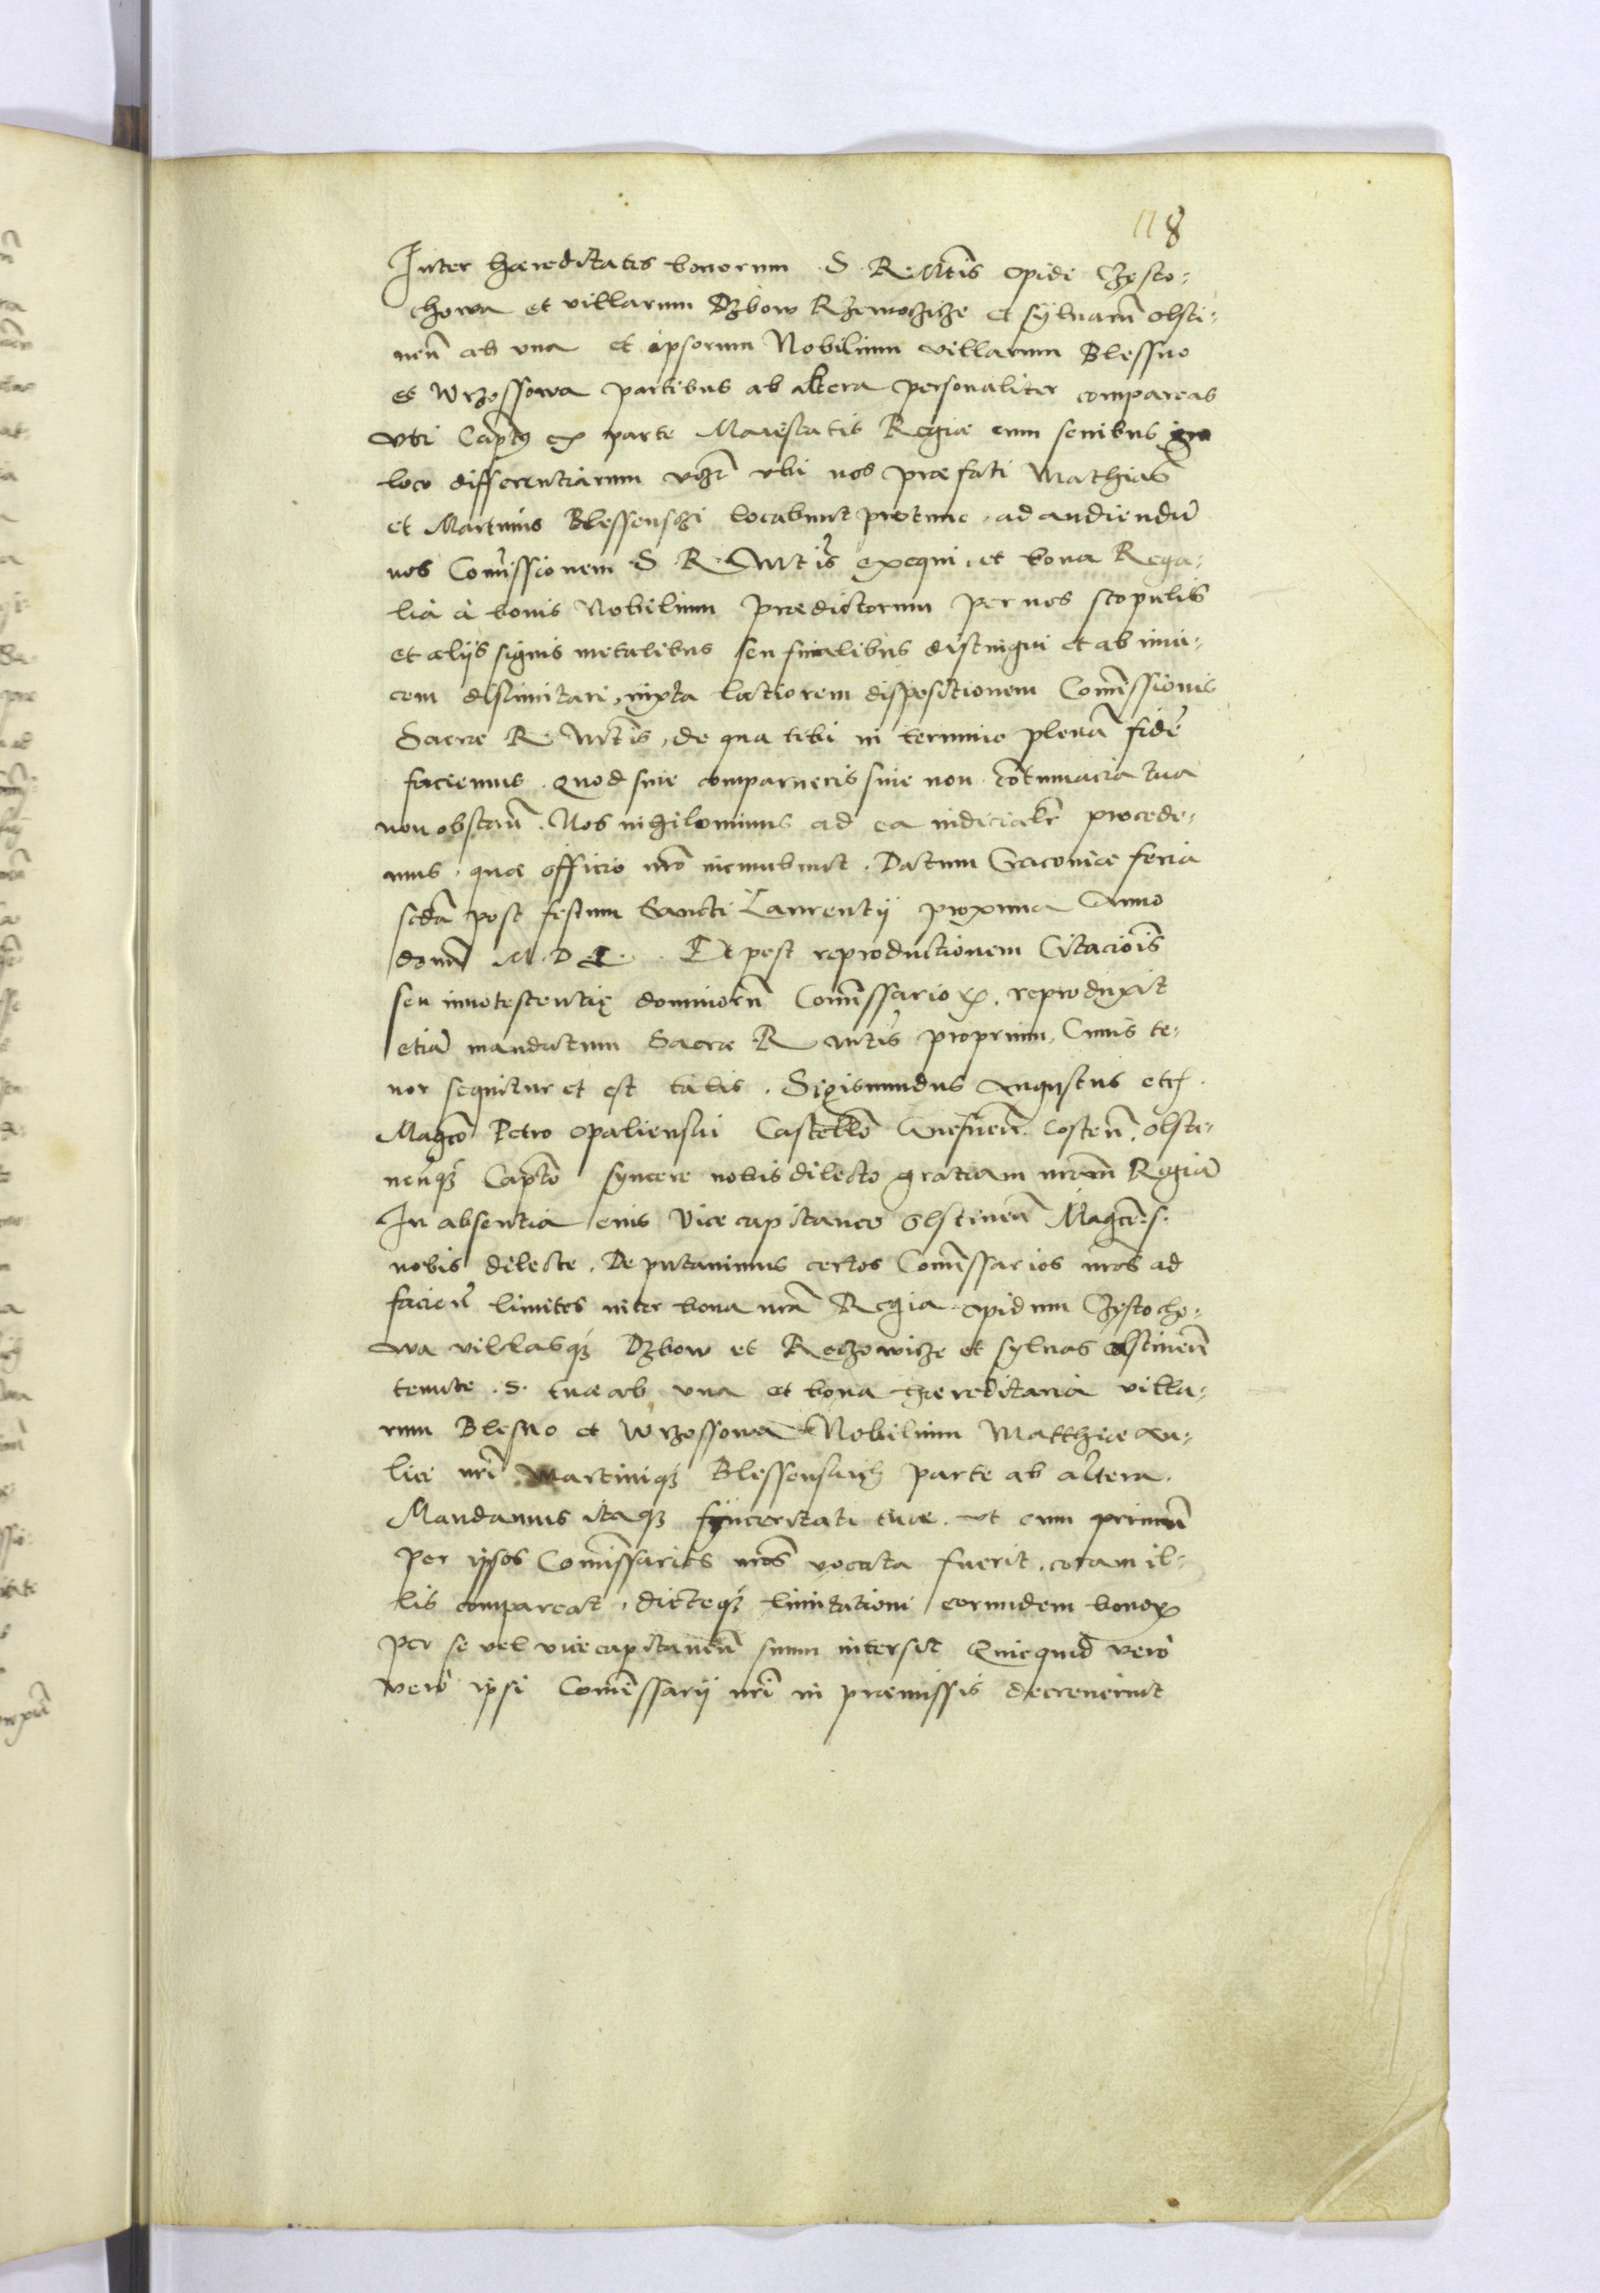 118
Inter hæreditates bonorum S. R. Mtis opidi Czesto-
chowa et villarum Dzbow Rzewochicze et sylvarũ olsti-
neñ ab una et ipsorum Nobilium villarum Blessno
et Wrzossowa partibus ab altera personaliter compareas
vti Capts ex parte Maiestatis Regiæ cum senibus in
loco differentiarum ubi nos præfati Mathias
et Martinus Blessenschi locabunt protunc, ad audiendũ
nos Comissionem S. R. Mtis exequi, et bona Rega-
lia à bonis Nobilium prædictorum per nos scopulis
et aliis signis metalibus seu finalibus distingui et ab invi-
cem dislimitari, iuxta latiorem dispositionem Comissionis
Sacræ R. Mtis, de qua tibi in termino plenã fidẽ
faciemus. Quod sive comparueris sive non cõtumacia tua
non obstañ. Nos nihilominus ad ea iudicialr procede-
mus, quæ officio nrõ incumbunt. Datum Cracoviæ feria
scdã post festum Sancti Laurentij proxima Anno
domĩ M. D. L. Et post reproductionem Citacioĩs
seu innotescentię dominorũ Comissariorꝝ, reproduxit
etiã mandatum Sacræ R. Mtis proprium, Cuius te-
nor sequitur et est talis. Sigismundus Augustus etc.
Magco Petro Opalienski Castellõ Gnesneñ. Costeñ. olsti-
neñqꝫ Captõ syncere nobis dilecto gratiam nram Regiã
In absentia eius Vice capitaneo olstineñ Magce. s.
nobis dilecte. Deputavimus certos Comissarios nros ad
facieñ limites inter bona nrã Regia opidum Czestocho-
wa villasqꝫ Dzbow et Reczowicze et sylvas olstineñ
tenute. S. tuæ ab una et bona hæreditaria villa-
rum Blesno et Wrzossowa Nobilium Matthiæ Au-
lici nri Martiniqꝫ Blessenskich parte ab altera.
Mandamus itaqꝫ synceritati tuæ. ut cum primũ
per ipsos Comissarios nros vocata fuerit, coram il-
lis compareat, dicteqꝫ limitationi eorundem bonorꝝ
per se vel vicecapitaneũ suum intersit Quicquid verò
verò ipsi Comissarij nri in præmissis decreverint